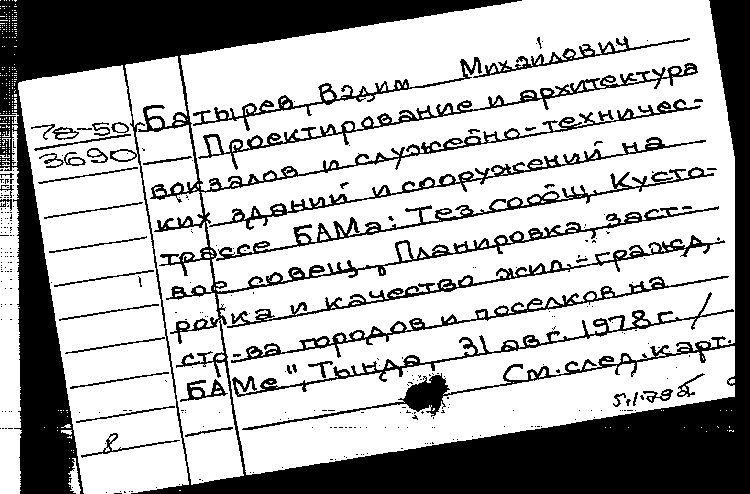 78-50
3690
Батырев, Вадим Михайлович
Проектирование и архитектура
вокзалов и служебно-техничес-
ких зданий и сооружений на
трассе БАМа: Тез. сообщ. Кусто-
вое совещ. „Планировка, заст-
ройка и качество жил.-гражд.
стр-ва городов и поселков на
БАМе", Тында, 31 авг. 1978 г. /
См. след. карт.
8